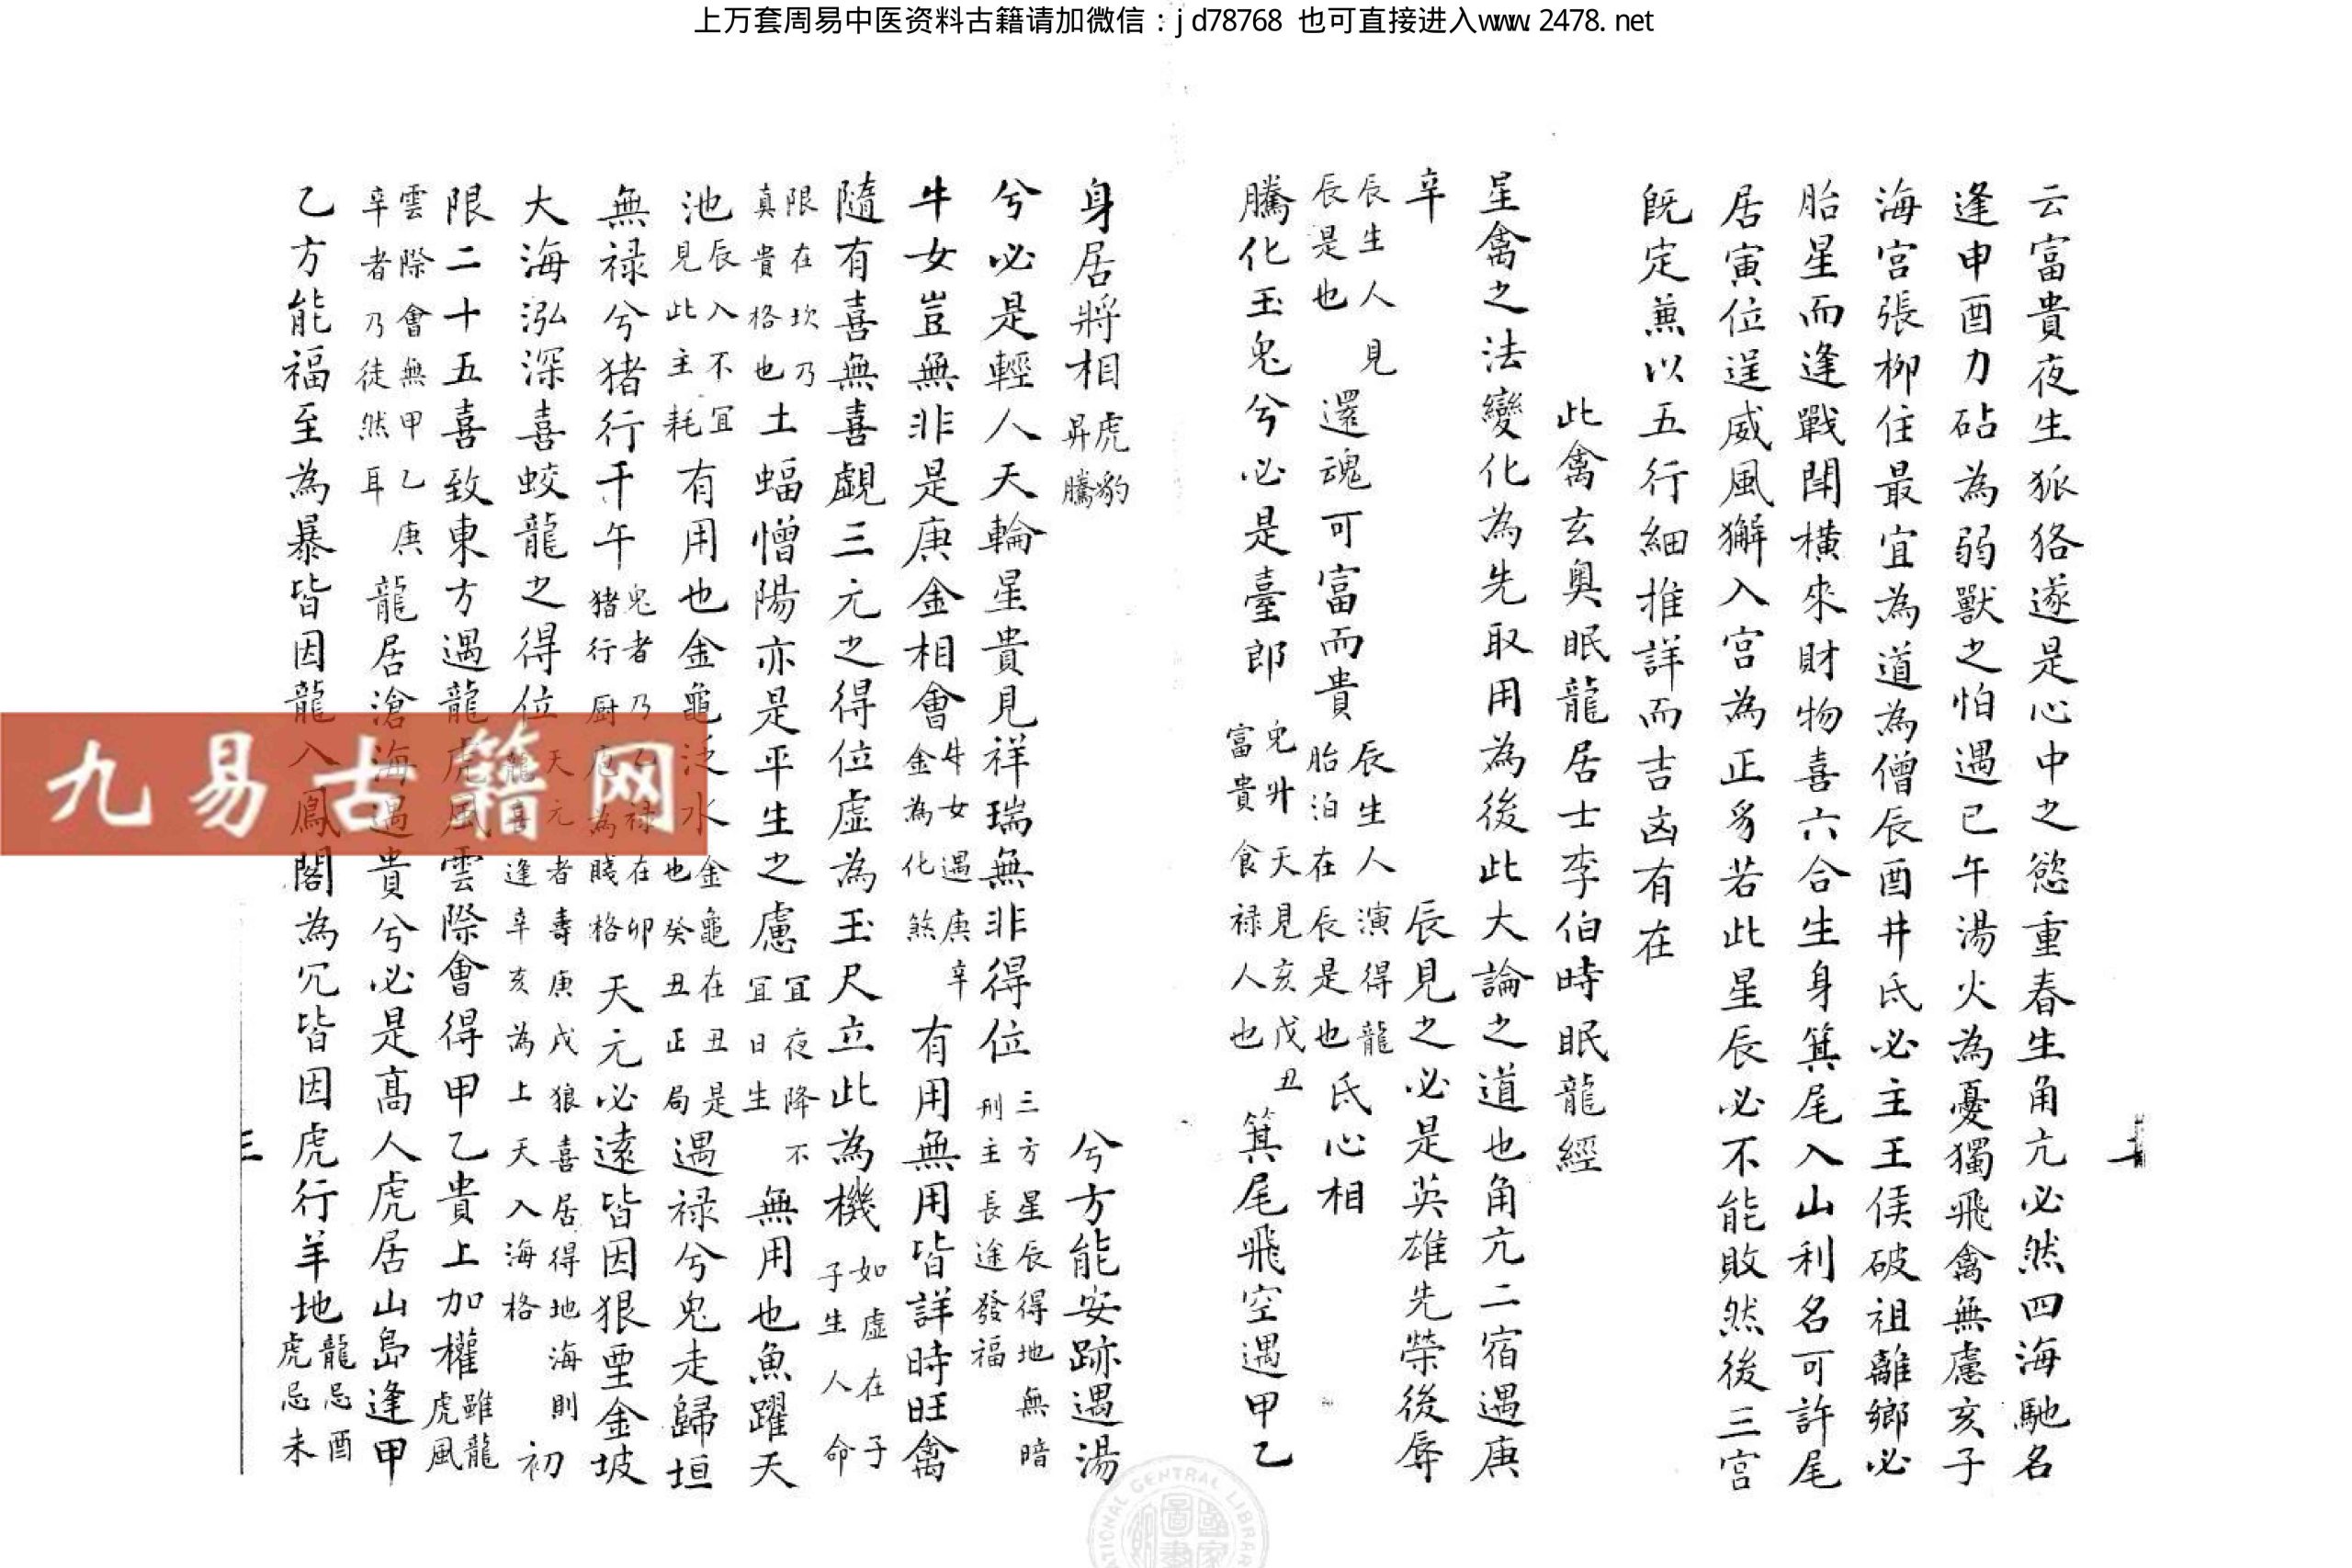 上万套周易中医资料古籍请加微信：jd78768 也可直接进入www.2478.net
云富貴夜生狐狢遂是心中之慾重春生角亢必然四海馳名
逢申酉力砧為弱獸之怕遇巳午湯火為憂獨飛禽無慮亥子
海宫張柳住最宜為道為僧辰酉井氐必主王侯破祖離鄉必
胎星而逢戰閗横來財物喜六合生身箕尾入山利名可許尾
居寅位逞威風獬入宫為正豸若此星辰必不能敗然後三宫
既定兼以五行細推詳而吉凶有在
此禽玄奥眠龍居士李伯時眠龍經
星禽之法變化為先取用為後此大論之道也角亢二宿遇庚
辛 辰生人見辰是也 還魂可富而貴 辰生人演得龍胎泊在辰是也 辰見之必是英雄先榮後辱
氐心相
騰化玉兎兮必是臺郎 兎升天見亥戊丑富貴食禄人也 箕尾飛空遇甲乙
身居將相 虎豹昇騰 兮方能安跡遇湯
兮必是輕人天輪星貴見祥瑞無非得位 三方星辰得地無暗刑主長途發福
牛女豈無非是庚金相會 牛女遇庚辛金為化煞 有用無用皆詳時旺禽
隨有喜無喜覷三元之得位虛為玉尺立此為機 如虛在子子生人命
限在坎乃真貴格也 土蝠憎陽亦是平生之慮 宜夜降不宜日生 無用也魚躍天
池 辰入不宜見此主耗 有用也金龜泛水 金龜在丑是也癸丑正局 遇禄兮兎走歸垣
無禄兮猪行千午 兎者乃乙禄在卯猪行厨庖為賤格 天元必遠皆因狠堊金坡
大海泓深喜蛟龍之得位 天元者壽庚戌狼喜居得地海則龍喜逢辛亥為上天入海格 初
限二十五喜致東方遇龍虎風雲際會得甲乙貴上加權 雖龍虎風
雲際會無甲乙庚辛者乃徒然耳 龍居滄海遇貴兮必是高人虎居山島逢甲
乙方能福至為暴皆因龍入鳳閣為冗皆因虎行羊地 龍忌酉虎忌未
三
九易古籍网
NATIONAL CENTRAL LIBRARY